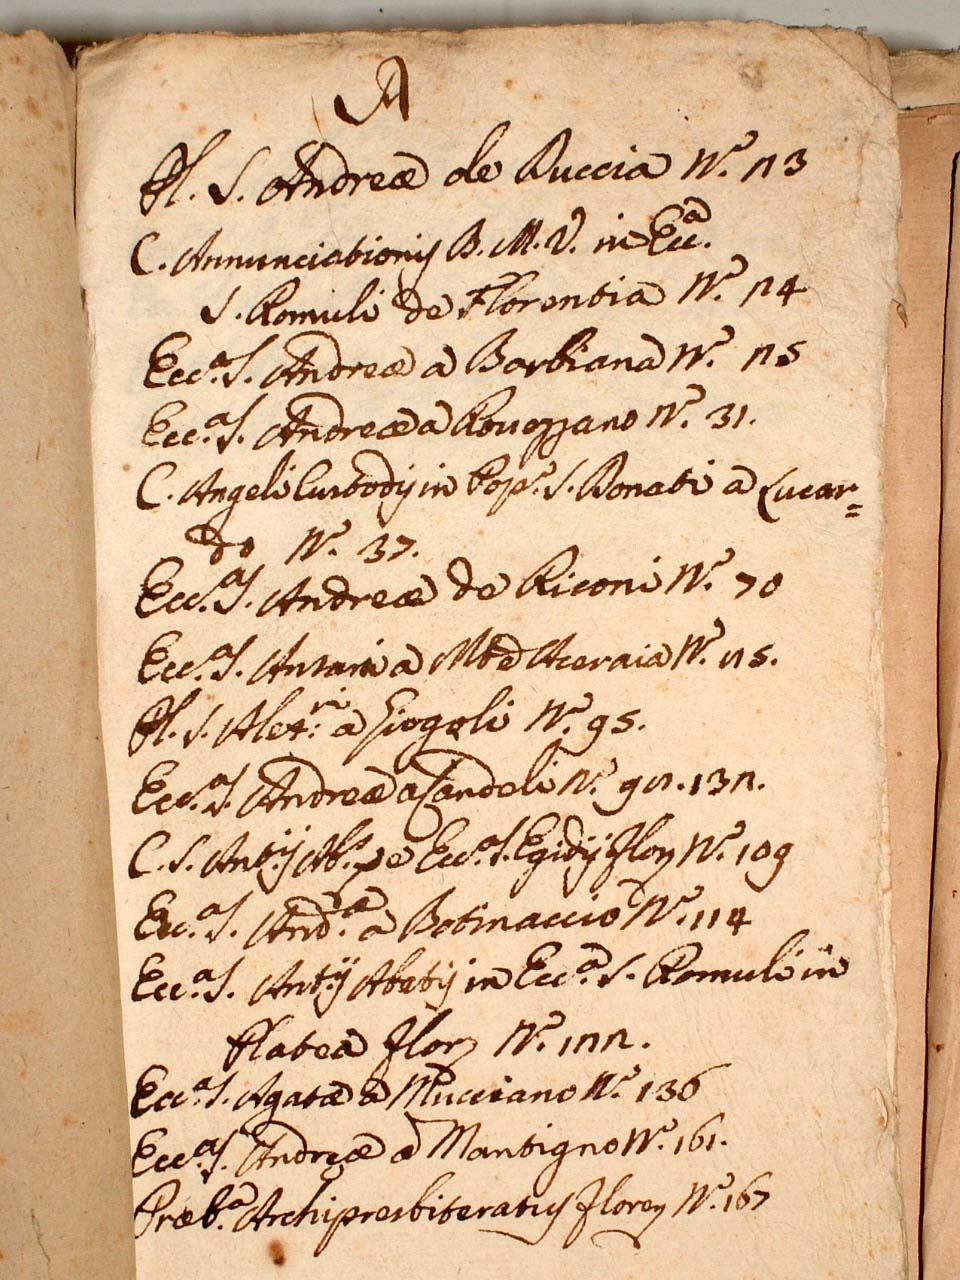 A
Pl. S. Andreæ de Buccia N.º 23
C. Annunciationis B. M. V. in Ecc.a
S. Romuli de Florentia N.º 24
Ecc.a S. Andreæ a Barbiana N.º 25
Ecc.a S. Andreæ a Rouezzano N.º 31.
C. Angeli Custodis in Pop.º S. Donati a Lucar=
do N.º 37.
Ecc.a S. Andreæ de Riconi N.º 70
Ecc.a S. a Aceraia N.º 25.
Pl. S. Alex.ri a Giogoli N.º 95.
Ecc.a S. Andreæ a Candeli N.º 92. 132.
C. S. Ant.ij Ab.s Ecc.a S. Egidij Flor N.º 109
Ecc.a S. And.æ a Botinaccio N.º 114
Ecc.a S. Ant.ij Abatis in Ecc.a S. Romuli in
Platea Flor N.º 122.
Ecc.a S. Agatæ a Mucciano N.º 136
Ecc.a S. Andreæ a Mantigno N.º 161.
Præb.a Archipresbiteratus Floren N.º 167